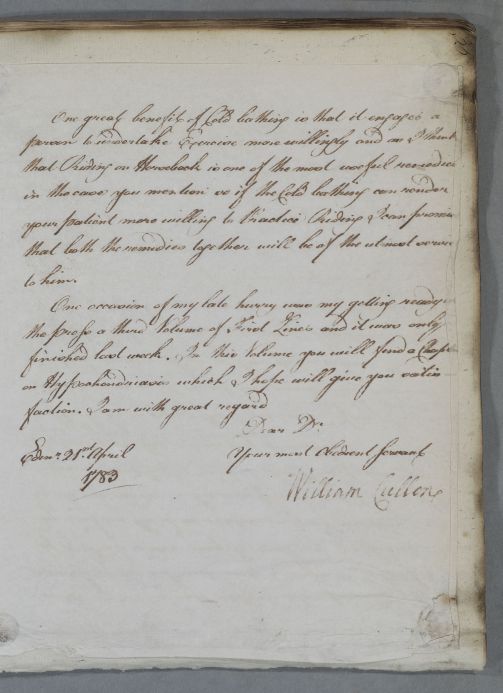 One great benefit of Cold bathing is that it engages a
person to undertake Exercise more willingly and as I think
that Riding on Horseback is one of the most useful remedies
in the case you mention so if the Cold bathing can render
your patient more willing to Practice Riding I can promise
that both the remedies together will be of the utmost service
to him.
One occasion of my late hurry was my getting ready
the press a third Volume of First Lines and it was only
finished last week. In this Volume you will find a Chapt
on Hypochondriasis which I hope will give you satis-
faction. I am with great regard
Dear Dr.
Edinr. 21st April
Your most Obedient Servant
1783
William Cullen